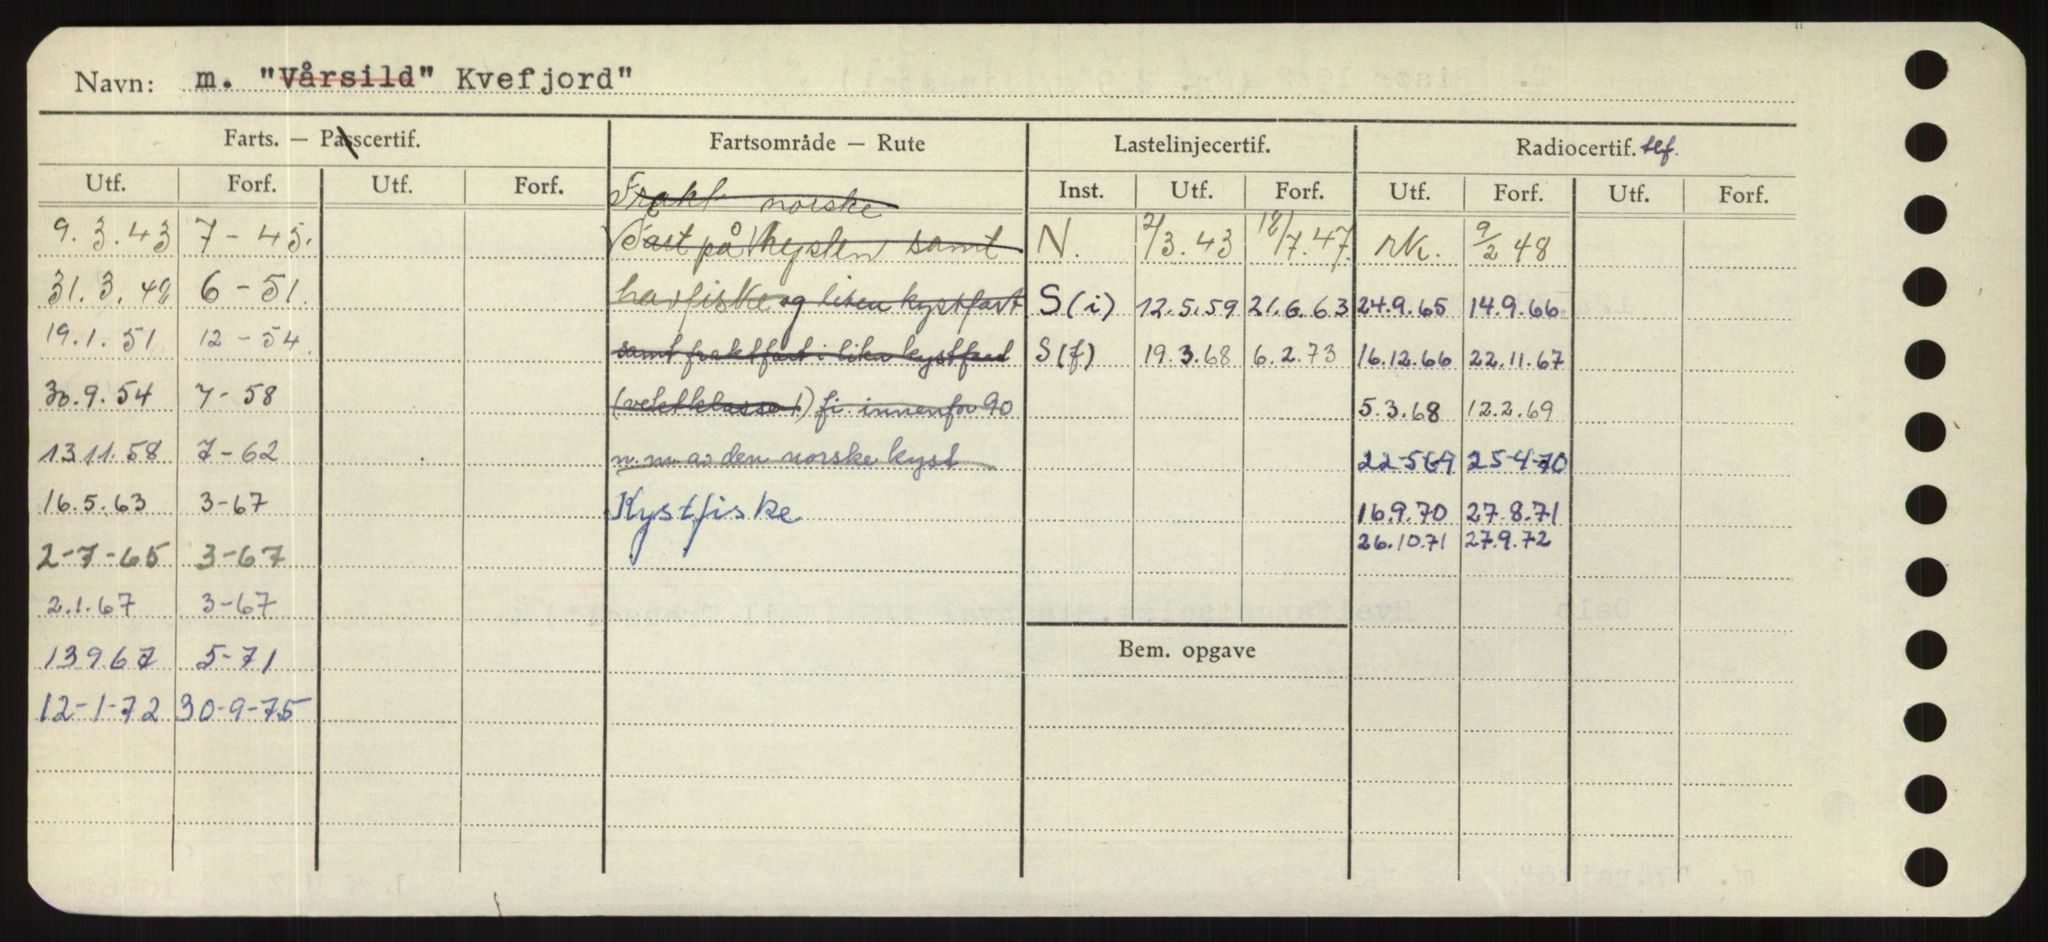 Navn: m. "Vårsild" Kvefjord"
Farts. — Passcertif. Fartsområde — Rute Lastelinjecertif. Radiocertif. tlf.
Utf. Forf. Utf. Forf. Inst. Utf. Forf. Utf. Forf. Utf. Forf.
Frakt norske
9. 3. 43 7 - 45. Fart på kysten samt N. 2/3. 43 12/7. 47. rk. 9/2 48
31. 3. 49 6 - 51. havfiske og liten kystfart S (i) 12. 5. 59 21. 6. 63 24.9.65 14.9.66
19. 1. 51 12 - 54. samt fraktfart i liten kystfart S (f) 19. 3. 68 6. 2. 73 16.12.66 22.11.67
30. 9. 54 7 - 58 (vektklasse 1) fi. innenfor 90 5.3.68 12.2.69
13 11. 58 7 - 62 n. m. av den norske kyst 22-5-69 25-4-70
16. 5. 63 3-67 Kystfiske 16.9.70 27.8.71
26.10.71 27.9.72
2-7-65 3-67
2. 1. 67 3-67
13 9 67 5-71
Bem. opgave
12-1-72 30-9-75